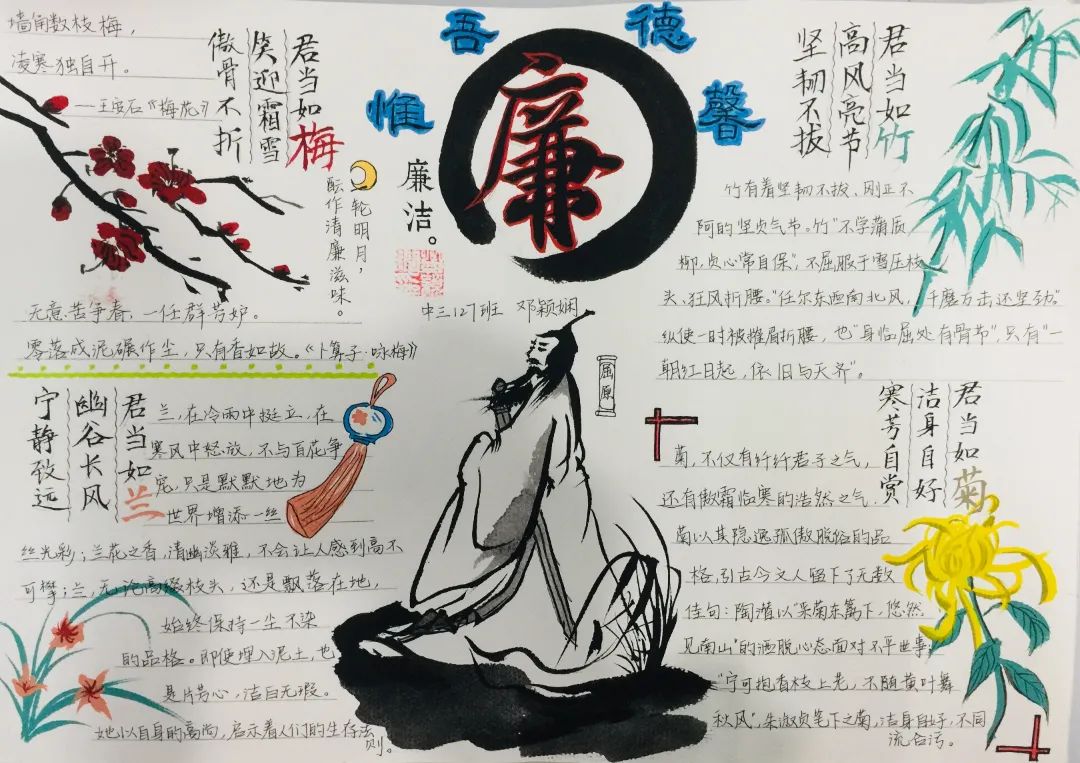 墙角数枝梅，
凌寒独自开。
——王安石《梅花》
君当如梅
笑迎霜雪
傲骨不折
惟吾德馨
廉
廉洁。
一轮明月，
酝作清廉滋味。
无意苦争春，一任群芳妒。
零落成泥碾作尘，只有香如故。《卜算子·咏梅》
中三127班 邓颖娴
屈原
君当如竹
高风亮节
坚韧不拔
竹有着坚韧不拔、刚正不
阿的坚贞气节。竹"不学蒲质
柳，贞心常自保"，不屈服于雪压枝
头、狂风折腰。"任尔东西南北风，千磨万击还坚劲。"
纵使一时被摧眉折腰，也"身临屈处有骨节"，只有"一
朝红日起，依旧与天齐"。
君当如兰
幽谷长风
宁静致远
兰，在冷雨中挺立，在
寒风中怒放，不与百花争
宠，只是默默地为
世界增添一丝
丝光彩；兰花之香，清幽淡雅，不会让人感到高不
可攀；兰，无论高缀枝头，还是飘落在地，
始终保持一尘不染
的品格。即使埋入泥土，也
是片芳心，洁白无瑕。
她以自身的高尚，启示着人们的生存法
则。
君当如菊
洁身自好
寒芳自赏
菊，不仅有纤纤君子之气，
还有傲霜临寒的浩然之气，
菊以其隐逸孤傲脱俗的品
格，引古今文人留下了无数
佳句：陶潜以"采菊东篱下，悠然
见南山"的洒脱心态面对不平世事；
"宁可抱香枝上老，不随黄叶舞
秋风"，朱淑贞笔下之菊，洁身自好，不同
流合污。